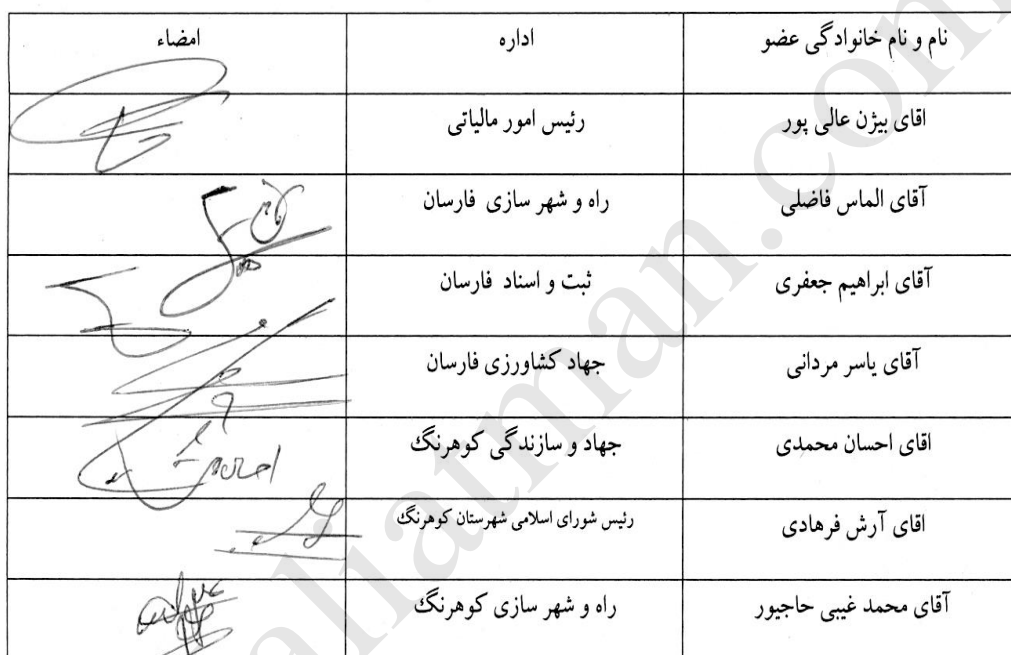 نام و نام خانوادگی عضو اداره امضاء
اقای بیژن عالی پور رئیس امور مالیاتی
آقای الماس فاضلی راه و شهر سازی فارسان
آقای ابراهیم جعفری ثبت و اسناد فارسان
آقای یاسر مردانی جهاد کشاورزی فارسان
اقای احسان محمدی جهاد و سازندگی کوهرنگ
اقای آرش فرهادی رئیس شورای اسلامی شهرستان کوهرنگ
آقای محمد غیبی حاجیور راه و شهر سازی کوهرنگ